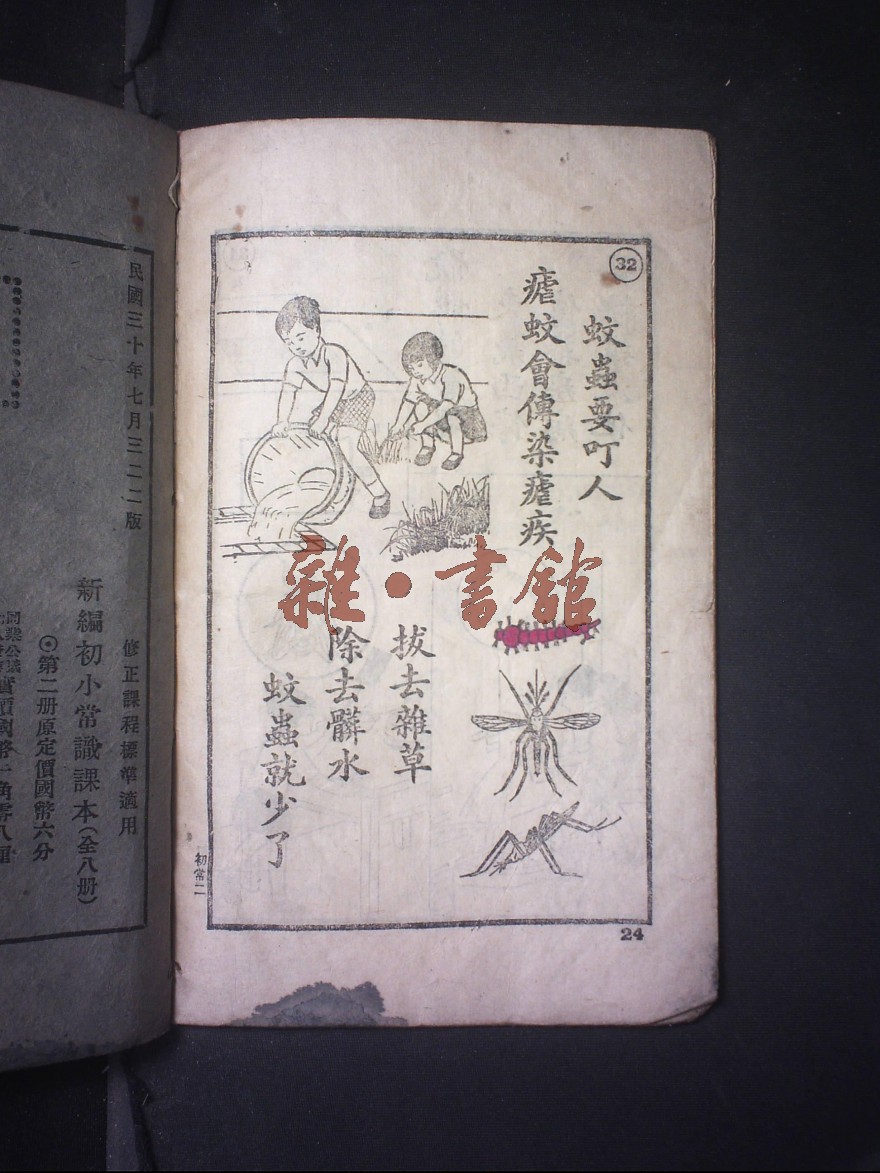 32
蚊蟲要叮人
瘧蚊會傳染瘧疾
拔去雜草
除去髒水
蚊蟲就少了
初常二
24
雜·書館
民國三十年七月三二二版
修正課程標準適用
新編初小常識課本(全八册)
⊙第二册原定價國幣六分
實價國幣一角零八厘